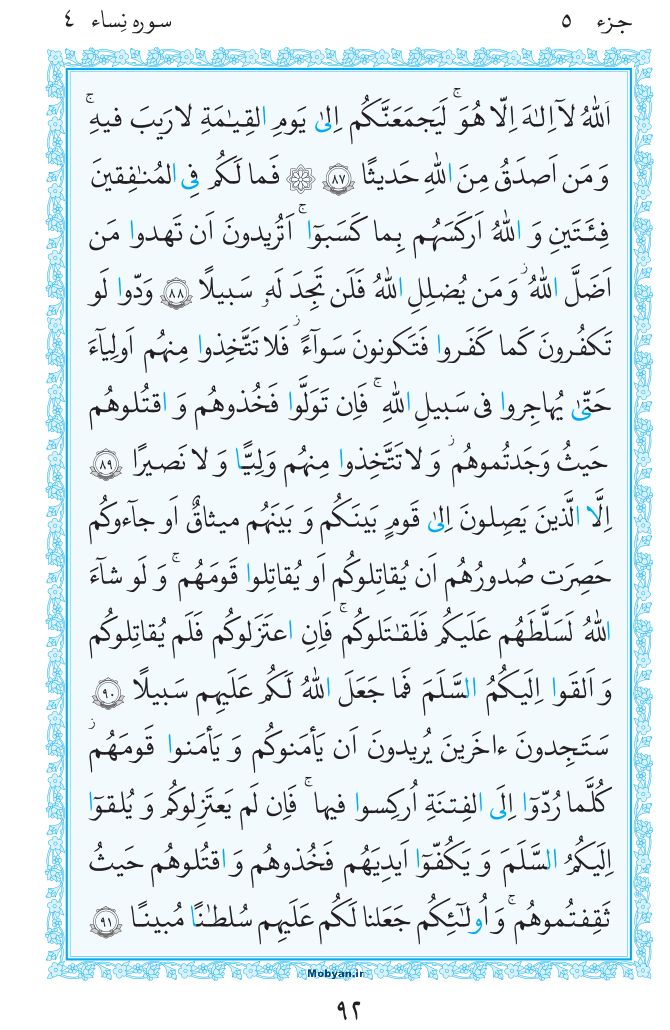 جزء ٥ سوره نِساء ٤
اَللّٰهُ لآ اِلـٰهَ اِلّا هُوَ ۚ لَيَجمَعَنَّكُم اِلىٰ يَومِ القِيـٰمَةِ لا رَيبَ فيهِ ۚ
وَ مَن اَصدَقُ مِنَ اللّٰهِ حَديثًا ﴿٨٧﴾ ۞ فَما لَكُم فِى المُنـٰفِقينَ
فِئَتَينِ وَ اللّٰهُ اَركَسَهُم بِما كَسَبوٓا ۚ اَتُريدونَ اَن تَهدوا مَن
اَضَلَّ اللّٰهُ ۖ وَ مَن يُضلِلِ اللّٰهُ فَلَن تَجِدَ لَهٗ سَبيلًا ﴿٨٨﴾ وَدّوا لَو
تَكفُرونَ كَما كَفَروا فَتَكونونَ سَوآءً ۖ فَلا تَتَّخِذوا مِنهُم اَولِيآءَ
حَتّىٰ يُهاجِروا فى سَبيلِ اللّٰهِ ۚ فَاِن تَوَلَّوا فَخُذوهُم وَ اقتُلوهُم
حَيثُ وَجَدتُموهُم ۖ وَ لا تَتَّخِذوا مِنهُم وَلِيًّا وَ لا نَصيرًا ﴿٨٩﴾
اِلَّا الَّذينَ يَصِلونَ اِلىٰ قَومٍ بَينَكُم وَ بَينَهُم ميثاقٌ اَو جآءوكُم
حَصِرَت صُدورُهُم اَن يُقاتِلوكُم اَو يُقاتِلوا قَومَهُم ۚ وَ لَو شآءَ
اللّٰهُ لَسَلَّطَهُم عَلَيكُم فَلَقـٰتَلوكُم ۚ فَاِنِ اعتَزَلوكُم فَلَم يُقاتِلوكُم
وَ اَلقَوا اِلَيكُمُ السَّلَمَ فَما جَعَلَ اللّٰهُ لَكُم عَلَيهِم سَبيلًا ﴿٩٠﴾
سَتَجِدونَ ءاخَرينَ يُريدونَ اَن يَأمَنوكُم وَ يَأمَنوا قَومَهُم ۖ
كُلَّما رُدّوٓا اِلَى الفِتنَةِ اُركِسوا فيها ۚ فَاِن لَم يَعتَزِلوكُم وَ يُلقوٓا
اِلَيكُمُ السَّلَمَ وَ يَكُفّوٓا اَيدِيَهُم فَخُذوهُم وَ اقتُلوهُم حَيثُ
ثَقِفتُموهُم ۚ وَ اُولـٰئِكُم جَعَلنا لَكُم عَلَيهِم سُلطـٰنًا مُبينًا ﴿٩١﴾
Mobyan.ir
٩٢